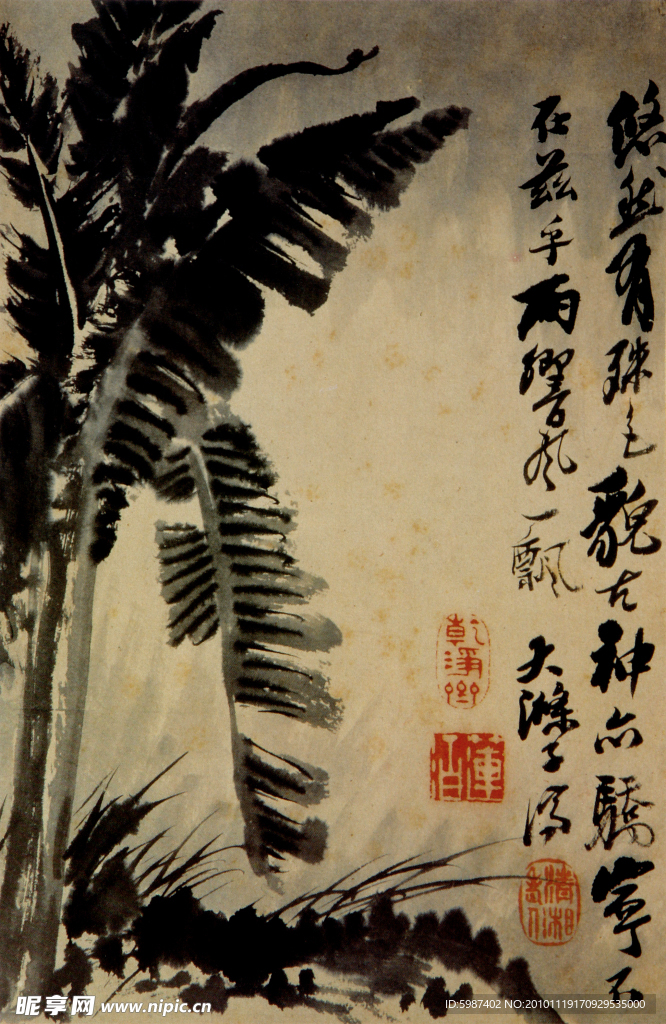 悠然有殊色貌古神亦驕寧不
在兹乎雨響風一飄
大滌子濟
乾淨州
清湘
昵享网 www.nipic.cn
ID:5987402 NO:20101119170929535000